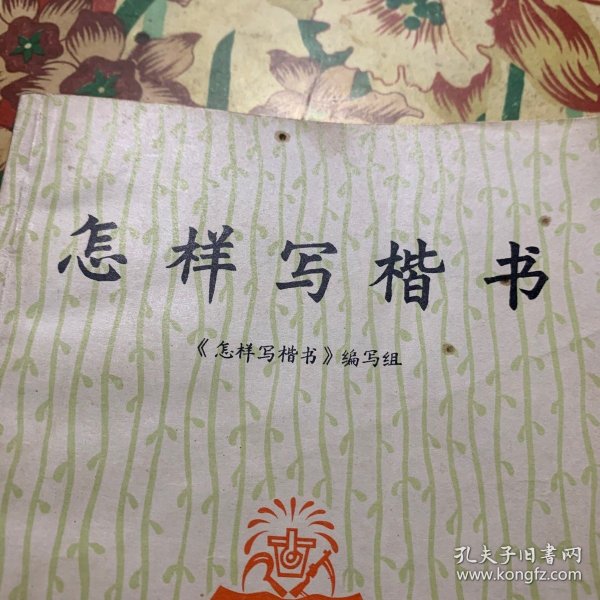 怎样写楷书
《怎样写楷书》编写组
孔夫子旧书网
www.kongfz.com